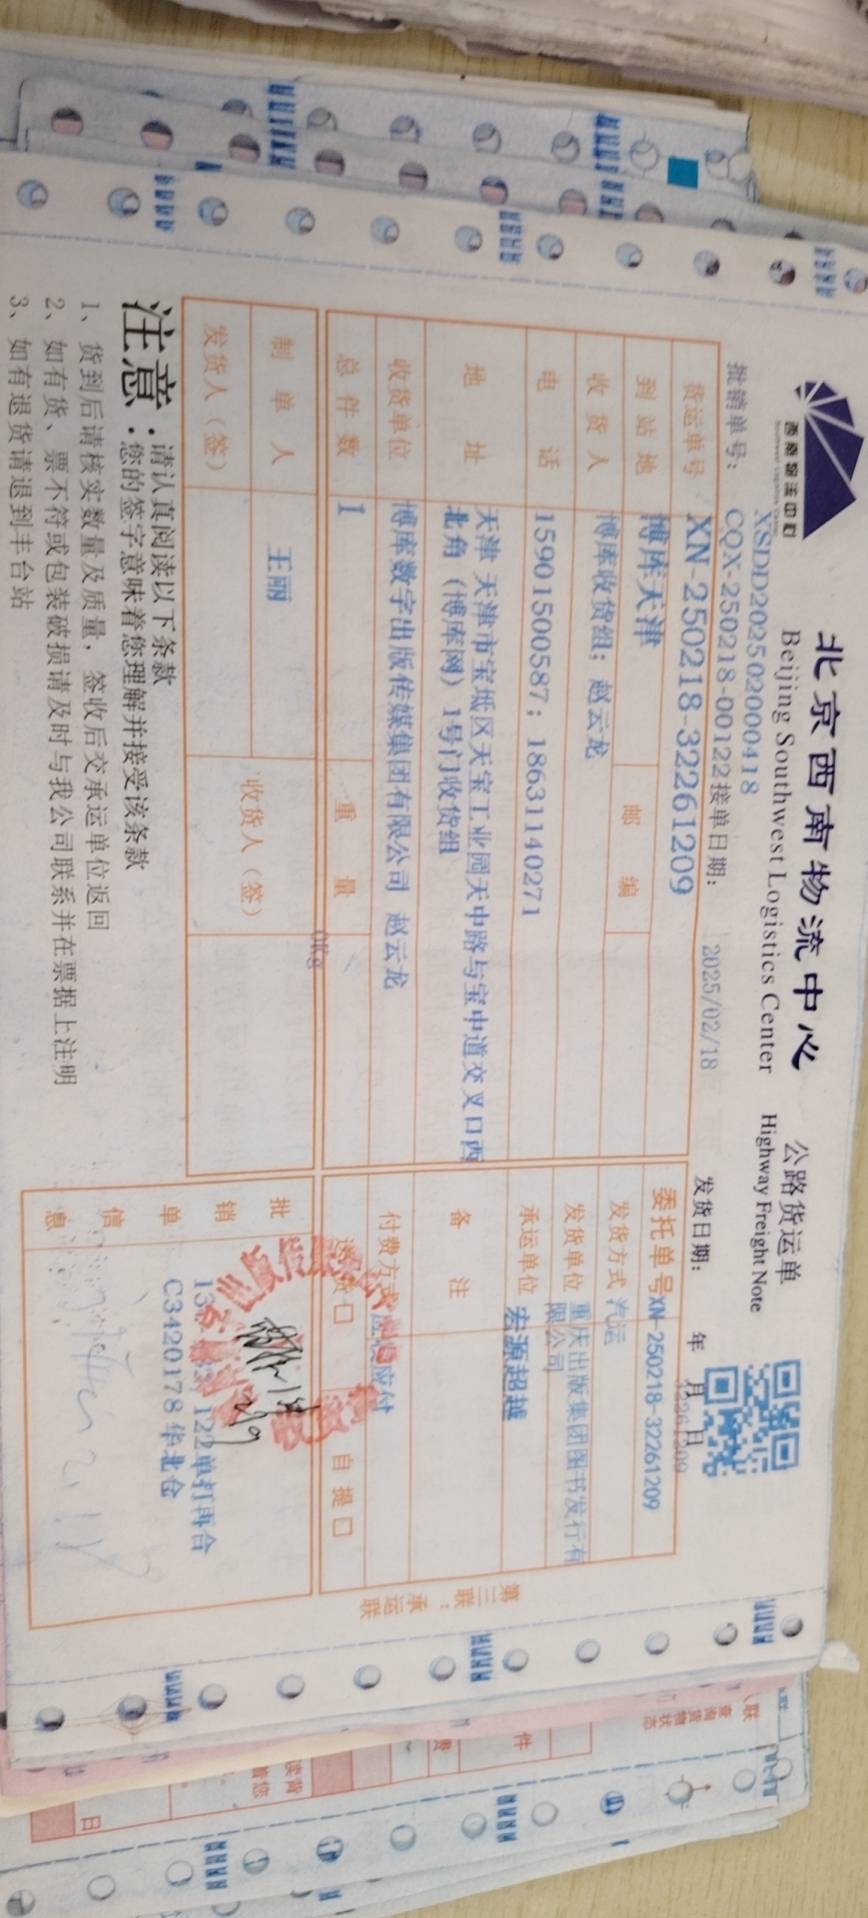 西南物流中心
Southwest Logistics Center
北京西南物流中心
Beijing Southwest Logistics Center
公路货运单
Highway Freight Note
XSDD202502000418
批销单号： CQX-250218-00122 接单日期： 2025/02/18 发货日期： 年 月 日
32261209
货运单号 XN-250218-32261209 委托单号 XN-250218-32261209
到站地 博库天津 邮编 发货方式 汽运
收货人 博库收货组；赵云龙 发货单位 重庆出版集团图书发行有
限公司
电话 15901500587；18631140271 承运单位 宏源超越
地址 天津 天津市宝坻区天宝工业园天中路与宝中道交叉口西
北角（博库网）1号门收货组
备注
收货单位 博库数字出版传媒集团有限公司 赵云龙 付费方式 应付
总件数 1 重量 0Kg 送货口 自提口
制单人 王丽 收货人（签）
发货人（签）
批销单信息
122单打再合
C3420178 华北仓
第三联：承运联
注意：请认真阅读以下条款
您的签字意味着您理解并接受该条款
1、货到后请核实数量及质量，签收后交承运单位返回
2、如有货、票不符或包装破损请及时与我公司联系并在票据上注明
3、如有退货请退到丰台站